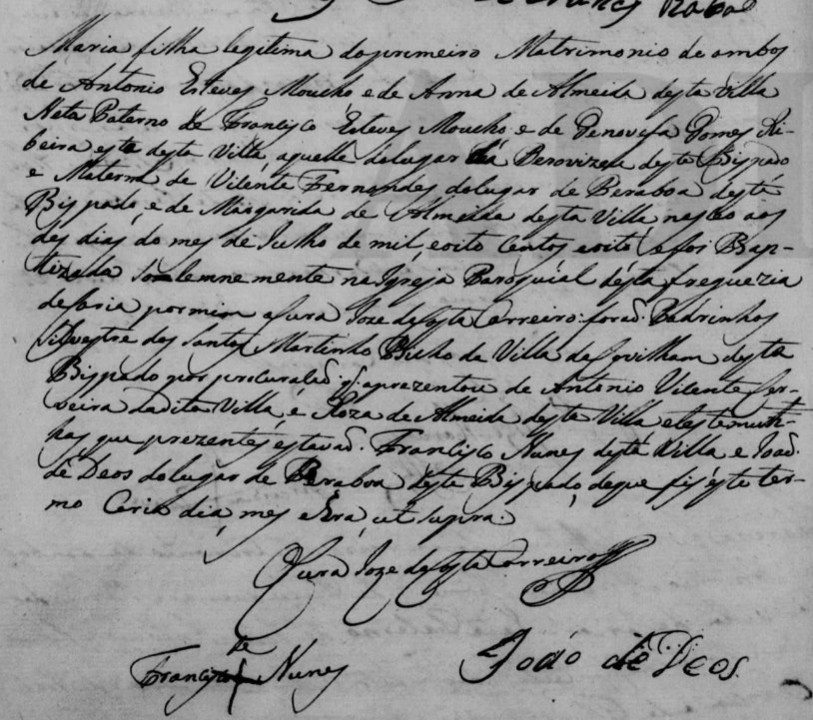 Maria filha legitima do primeiro Matrimonio de ambos
de Antonio Esteves Moucho e de Anna de Almeida desta Villa
Neta Paterno de Francisco Esteves Moucho e de Genovefa Gomes Ri-
beira esta desta Villa, aquelle do lugar da deste Bispado
e Matern de Vicente Fernandes do lugar de Peraboa deste
Bispado, e de Margarida de Almeida desta Villa nasceo aos
des dias do mes de Julho de mil, e oito centos e oito e foi Bap-
tizada Somlemnemente na Igreja Paroquial desta freguezia
de por mim o Cura Joze da Costa Correiro: forão Padrinhos
Silvestre dos Santos Martinho Bicho da Villa da Covilham deste
Bispado por procuração q. aprezentou de Antonio Vicente Fer-
reira da dita Villa, e Roza de Almeida desta Villa e testemun-
has que prezentes estavão. Francisco Nunes desta Villa e João
de Deos do lugar de Peraboa deste Bispado, de que fis este ter-
mo Ceria dia mes e Era ut supra.
O Cura Joze da Costa Correiro
Francisco Nunes
João de Deos.